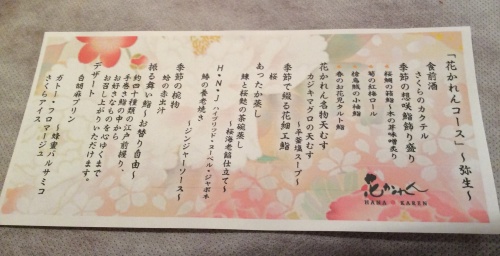 「花かれんコース」～弥生～
食前酒
さくらのカクテル
季節の想咲鮨飾り盛り
桜鯛の箱鮨～木の芽味噌炙り
筍の紅梅ロール
槍烏賊の小袖鮨
春のお花見タルト鮨
花かれん名物天むす
カジキマグロの天むす
季節で綴る花細工鮨
桜 ～平釜塩スープ～
あったか蒸し
鰊と桜麩の茶碗蒸し
～桜海老餡仕立て～
H・N・J ハイブリッド・ヌーベル・ジャポネ
鰆の養老焼き
～ジンジャーソース～
季節の椀物
蛤の赤出汁
振る舞い鮨～お替り自由～
約四十種類の江戸前握り、
手巻き鮨の中から
お好きなものを心ゆくまで
お召し上がりいただけます。
デザート
白胡麻プリン
ガトー・フロマージュ～蜂蜜バルサミコ
さくらアイス
花かれん
HANA KAREN